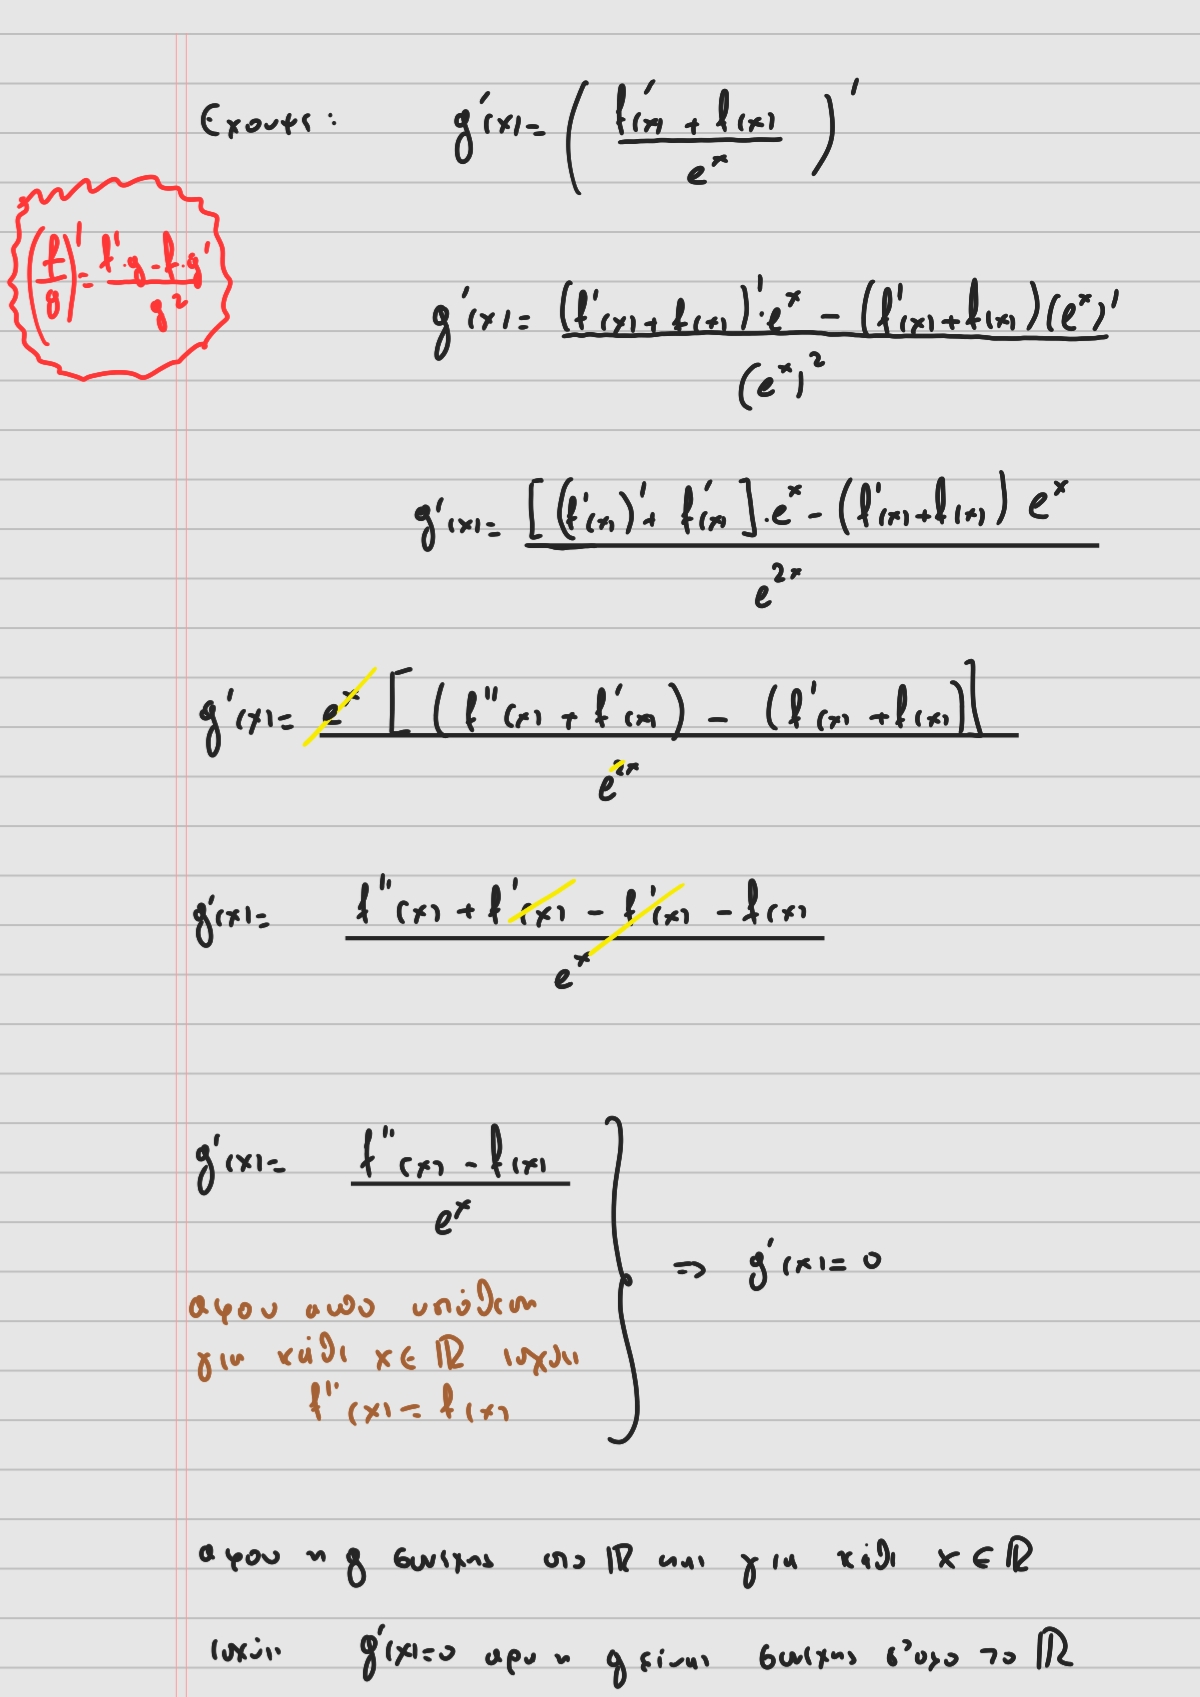 Εχουμε: g'(x) = ( f'(x) + f(x) / e^x )'
(f/g)' = f'·g - f·g' / g²
g'(x) = (f'(x) + f(x))'·e^x - (f'(x) + f(x))(e^x)' / (e^x)²
g'(x) = [(f'(x))' + f'(x)]·e^x - (f'(x) + f(x)) e^x / e^{2x}
g'(x) = e^x [ (f''(x) + f'(x)) - (f'(x) + f(x)) ] / e^{2x}
g'(x) = f''(x) + f'(x) - f'(x) - f(x) / e^x
g'(x) = f''(x) - f(x) / e^x
⇒ g'(x) = 0
αφου απο υποθεση
για καθε x ∈ ℝ ισχυει
f''(x) = f(x)
αφου η g συνεχης στο ℝ και για καθε x ∈ ℝ
ισχυει g'(x) = 0 αρα η g ειναι συνεχης σ'ολο το ℝ